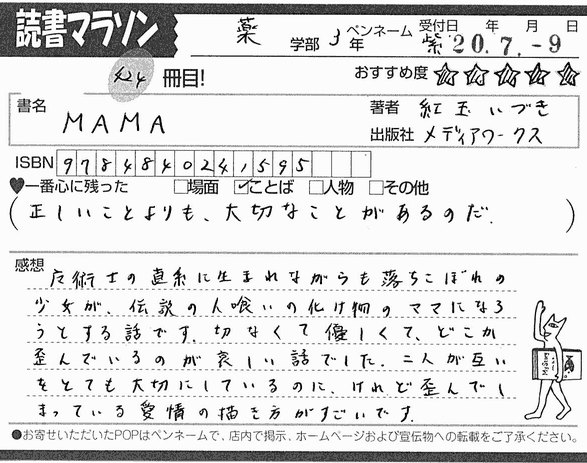 読書マラソン
薬 学部 3年 ペンネーム 紫 受付日 年 月 日
20.7.-9
冊目!
おすすめ度 ☆☆☆☆☆
書名 MAMA
著者 紅玉いづき
出版社 メディアワークス
ISBN 9784840241595
♥一番心に残った □場面 ☑ことば □人物 □その他
(正しいことよりも、大切なことがあるのだ.)
感想
魔術士の直系に生まれながらも落ちこぼれの
少女が、伝説の人喰いの化け物のママになろ
うとする話です。切なくて優しくて、どこか
歪んでいるのが哀しい話でした。二人が互い
をとても大切にしているのに、けれど歪んでし
まっている愛情の描き方がすごいです.
●お寄せいただいたPOPはペンネームで、店内で掲示、ホームページおよび宣伝物への転載をご了承ください。